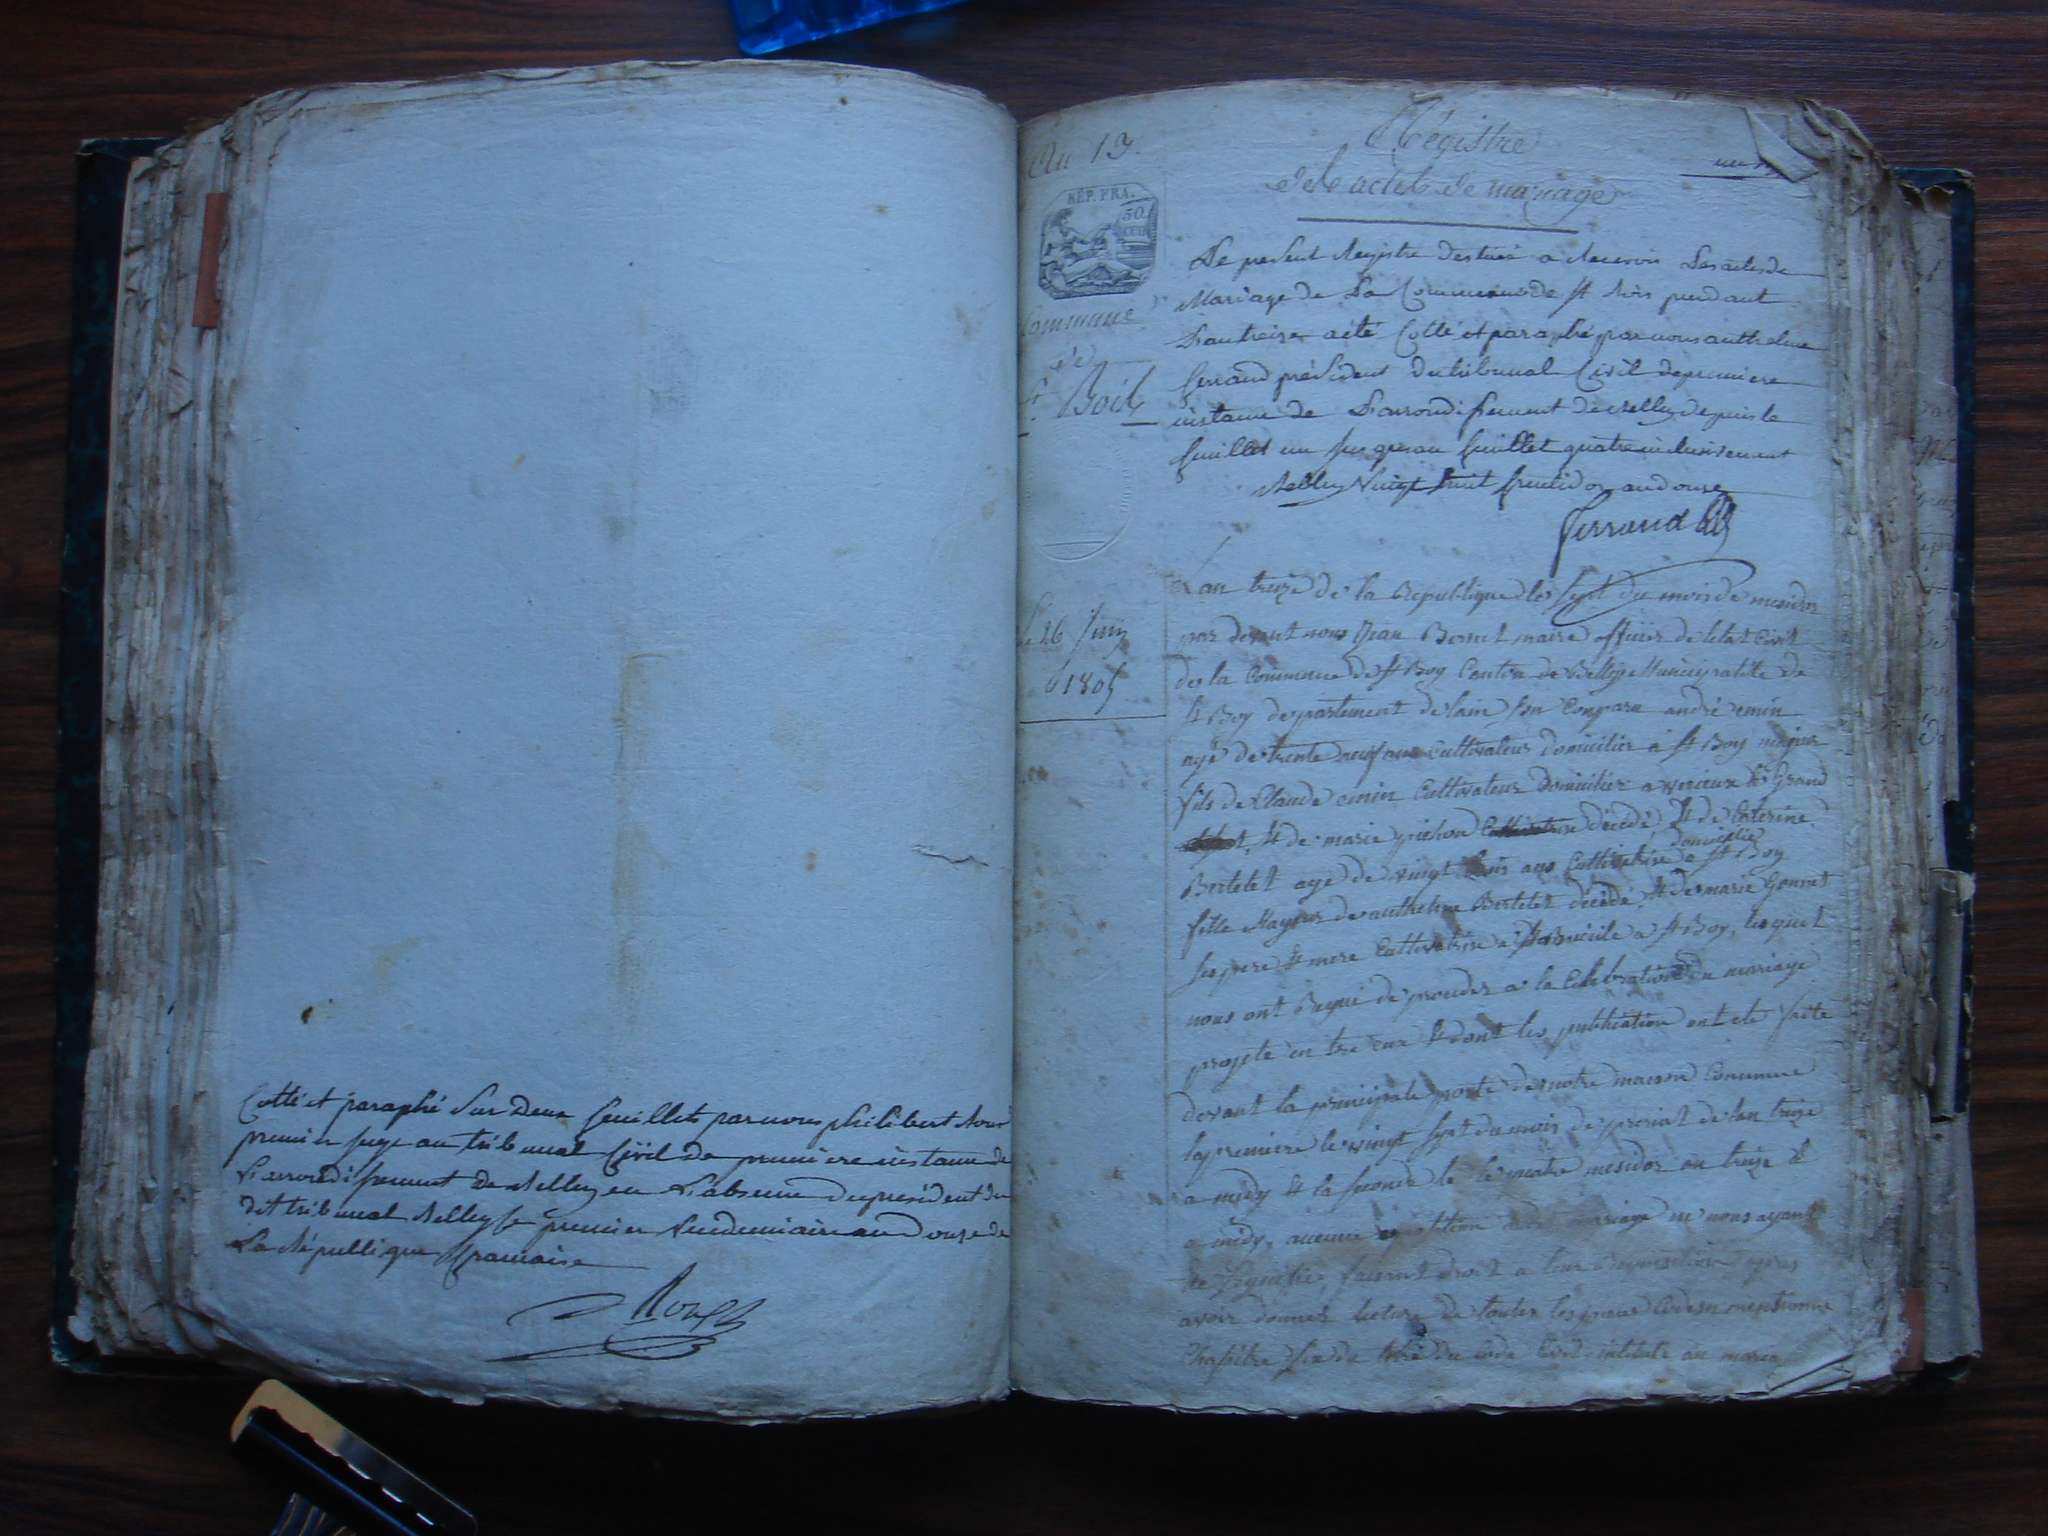 Cotté et paraphé Sur Deux feuillets par nous philibert
premier juge au tribunal Civil de premiere instance de
L'arrondissement de Belley en L'absence du président du
dit tribunal Belley le premier Vendemiaire an Douze de
La République française
An 13.
RÉP. FRA.
50
CEN
Commune
de
St Boil
Le 26 Juin
1805
Régistre
des actes de mariage
Le present Registre destiné a Recevoir Les actes de
Mariage de La Commune de St Bois pendant
L'an treize a été Cotté et paraphé par nous anthelme
ferrand président du tribunal Civil de premiere
instance de L'arrondissement de Belley depuis le
feuillet un jusqu'au feuillet quatre inclusivement
Belley Vingt huit fructidor an douze
ferrand
L'an treize de la Republique le sept du mois de messidor
par devant nous Jean Bornet maire officier de l'etat Civil
de la Commune de St Boy Canton de Belley Municipalité de
St Boy departement de lain son Comparu andré emin
agé de trente neuf ans cultivateur domicilier à St Boy majeur
fils de Claude emin Cultivateur Domicilier a le Grand
et de marie décédé, et de Caterine
domicilié
Bertelet agé de vingt ans Cultivatrise a St Boy
fille Mayeur de anthelme Bertelet décédé et de marie Gonnet
ses pere et mere Cultivatrise a St Boy, lesquel
nous ont Requi de proceder a la Celebration du mariage
projeté en tre eux et dont les publication ont eté faite
devant la principale porte de notre maison Commune
la premiere le vingt sept du mois de prerial de lan treize
a midy et la seconde le le quatre mesidor an treize a
a midy, aucune opozition audit mariage ne nous ayant
eté Signifié, faisant droit a leur Requisition apres
avoir donner lecture de toutes les pieces Cidesu mentionné
Chapitre six du titre du Code Civil intitulé du mariage